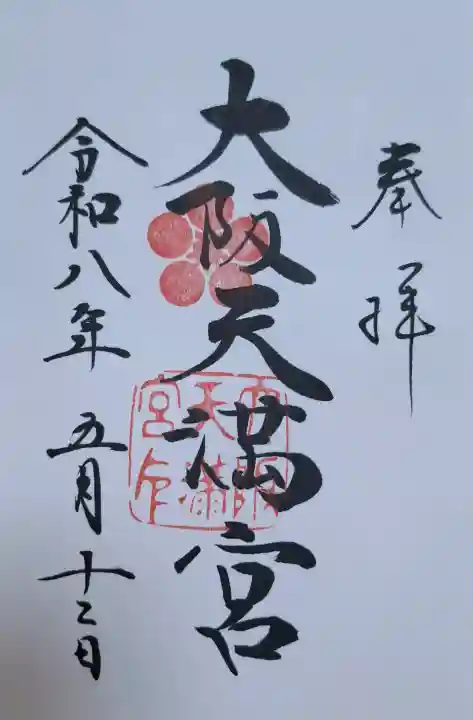 奉拝
大阪天満宮
大阪天満宮印
令和八年 五月十二日